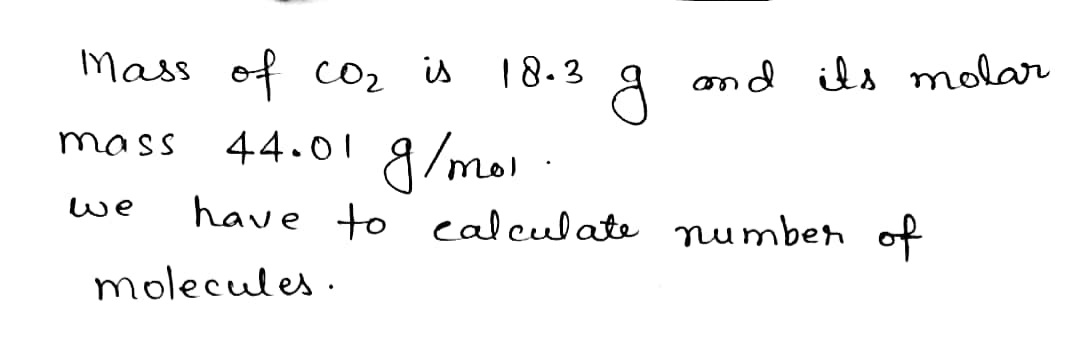 Mass of CO2 is 18.3 g and its molar
mass 44.01 g/mol.
we have to calculate number of
molecules.